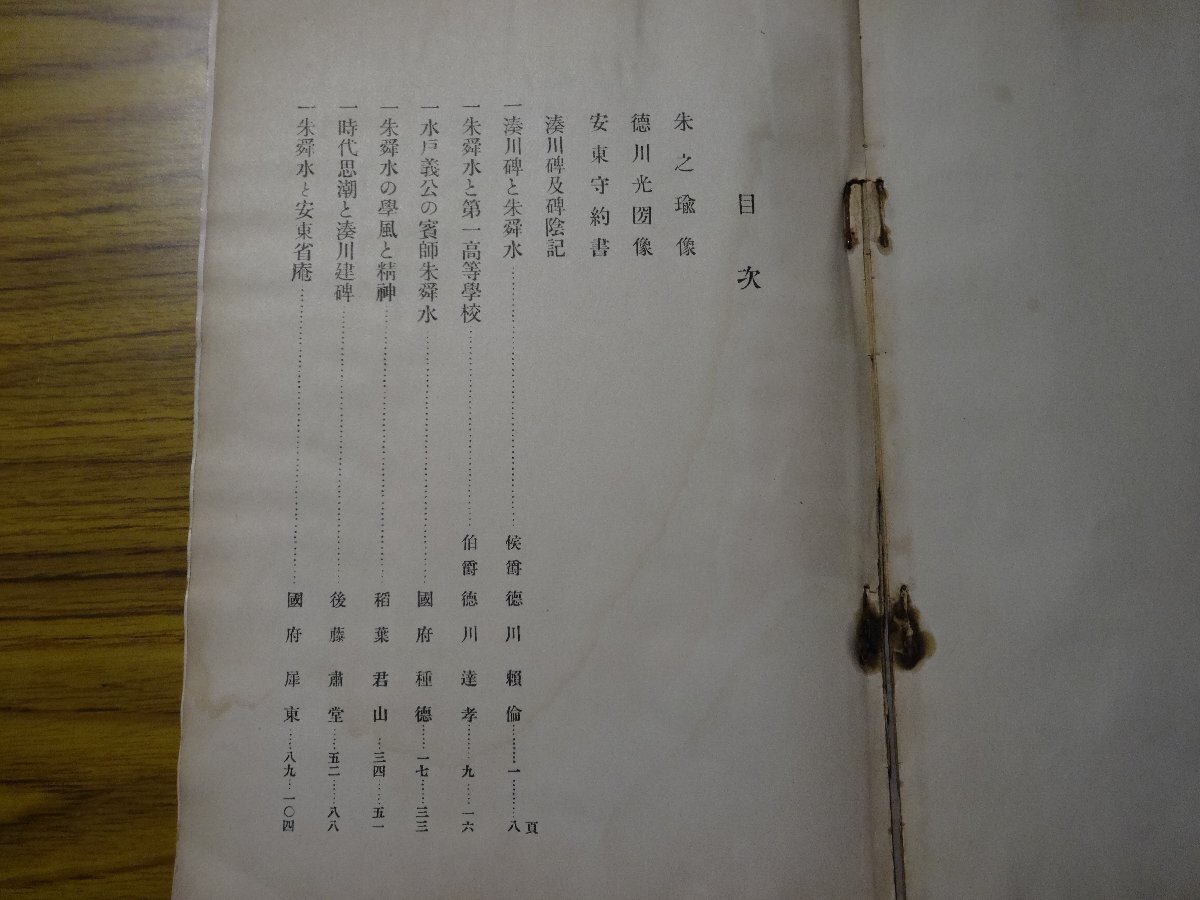 目次
朱之瑜像
德川光圀像
安東守約書
湊川碑及碑陰記
一湊川碑と朱舜水……侯爵德川賴倫……一……八頁
一朱舜水と第一高等學校……伯爵德川達孝……九……一六
一水戶義公の賓師朱舜水……國府種德……一七……三三
一朱舜水の學風と精神……稻葉君山…三四……五一
一時代思潮と湊川建碑……後藤肅堂……五二……八八
一朱舜水と安東省庵……國府犀東……八九…一〇四